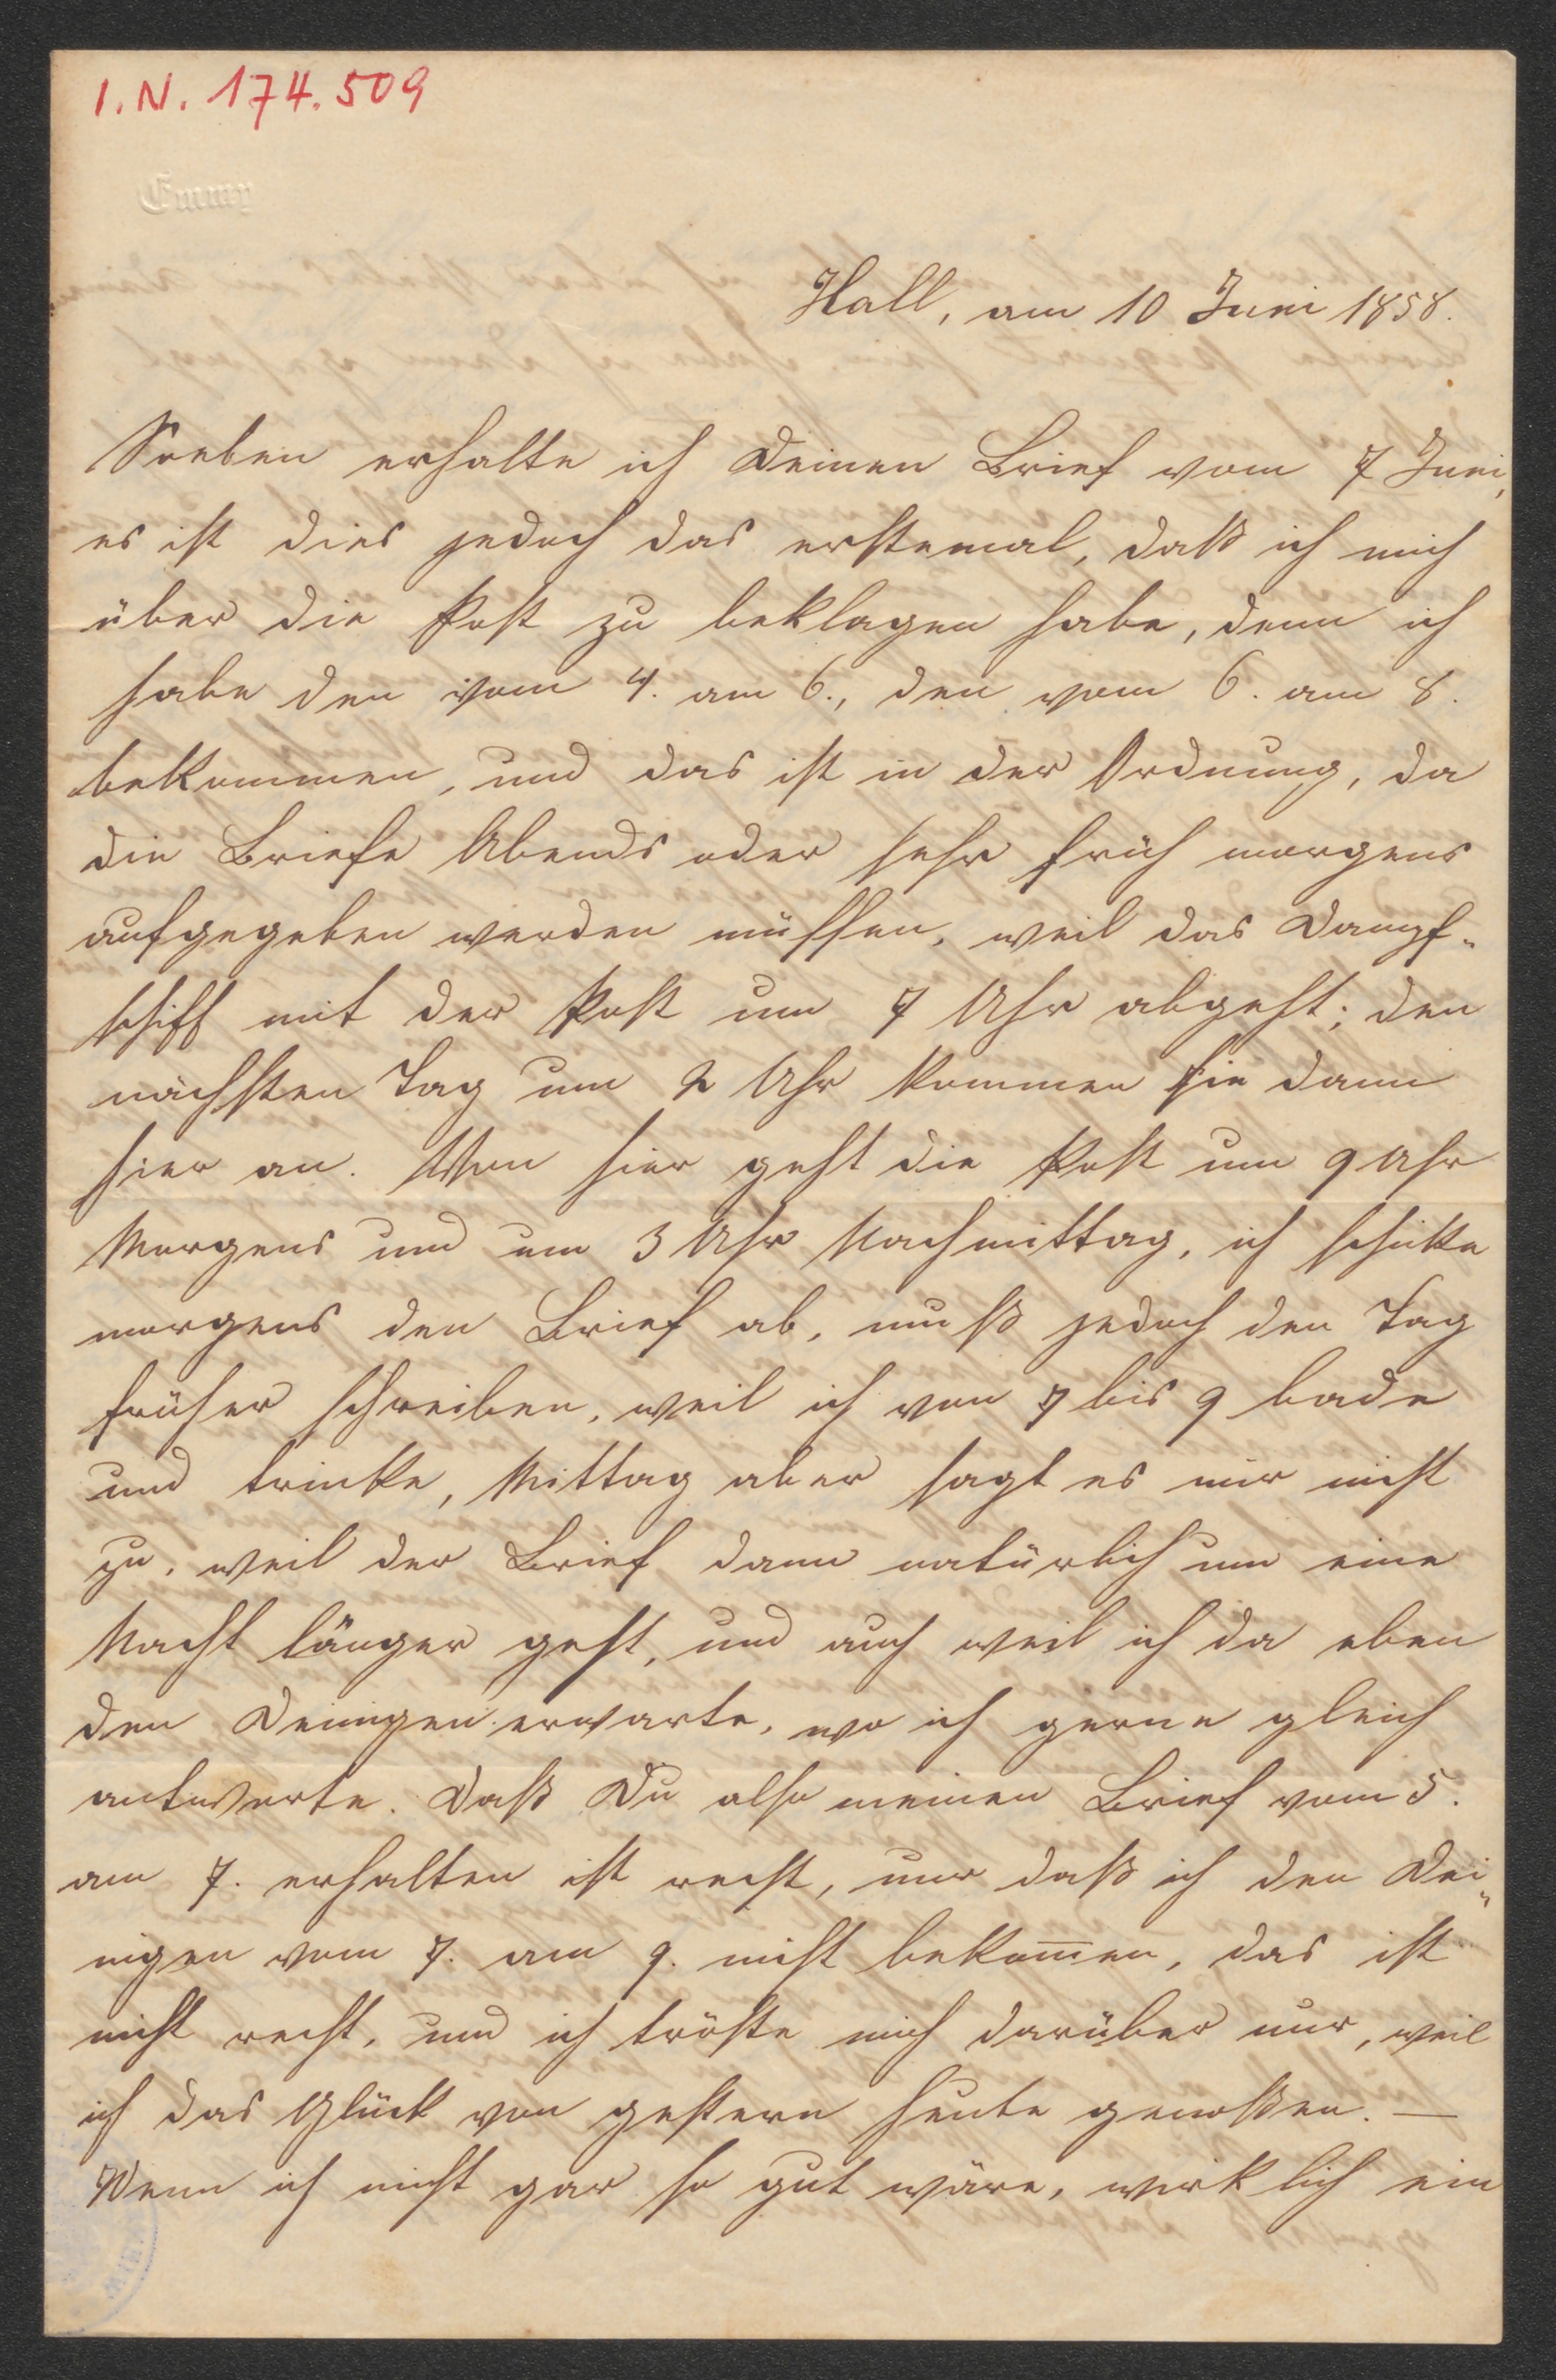 I.N. 174.509
Emmy
Hall, am 10 Juni 1858.
Soeben erhalte ich Deinen Brief vom 7 Juni,
es ist dies jedoch das erstemal, daß ich mich
über die Post zu beklagen habe, denn ich
habe den vom 4. am 6., den vom 6. am 8.
bekommen, und das ist in der Ordnung, da
die Briefe Abends oder sehr früh morgens
aufgegeben werden müssen, weil das Dampf„
schiff mit der Post um 7 Uhr abgeht; den
nächsten Tag um 2 Uhr kommen sie dann
hier an. Von hier geht die Post um 9 Uhr
Morgens und um 3 Uhr Nachmittag, ich schicke
morgens den Brief ab, muß jedoch den Tag
früher schreiben, weil ich von 7 bis 9 bade
und trinke, Mittag aber sagt es mir nicht
zu, weil der Brief dann natürlich um eine
Nacht länger geht, und auch weil ich da eben
den Deinigen erwarte, wo ich gerne gleich
antworte. Daß Du also meinen Brief vom 5.
am 7. erhalten ist recht, nur daß ich den Dei„
nigen vom 7. am 9. nicht bekom̅en, das ist
nicht recht, und ich tröste mich darüber nur, weil
ich das Glück von gestern heute genoßen. —
Wenn ich nicht gar so gut wäre, wirklich ein